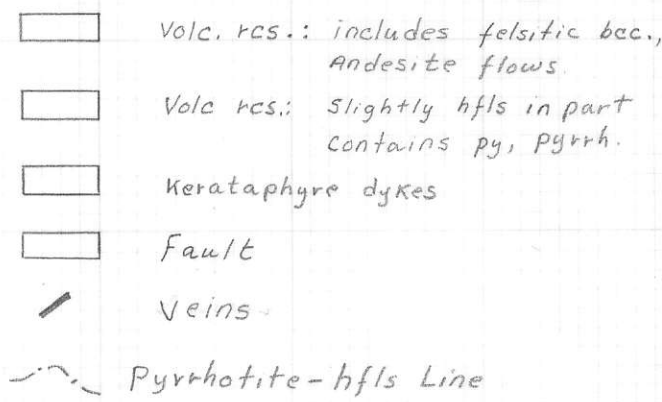 Volc. rcs.: includes felsitic bcc.,
Andesite flows.
Volc rcs.: Slightly hfls in part
Contains py, pyrrh.
Kerataphyre dykes
Fault
Veins
Pyrrhotite-hfls Line